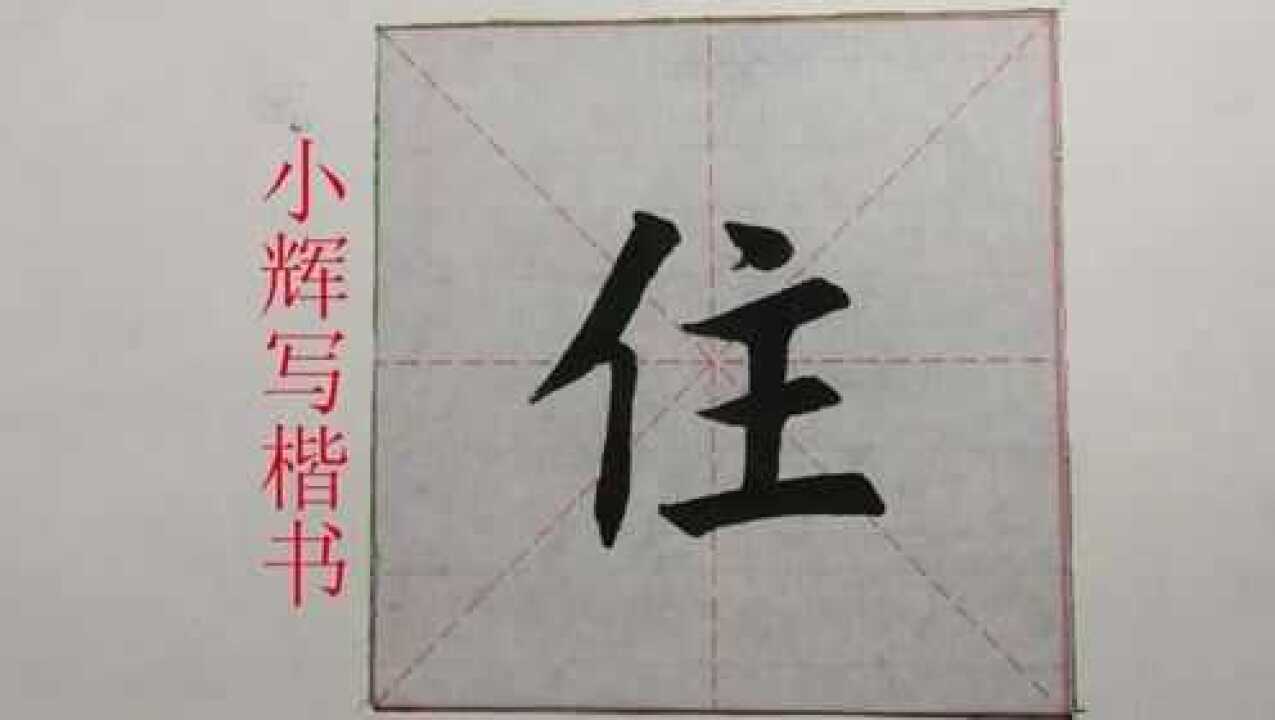 小辉写楷书
住